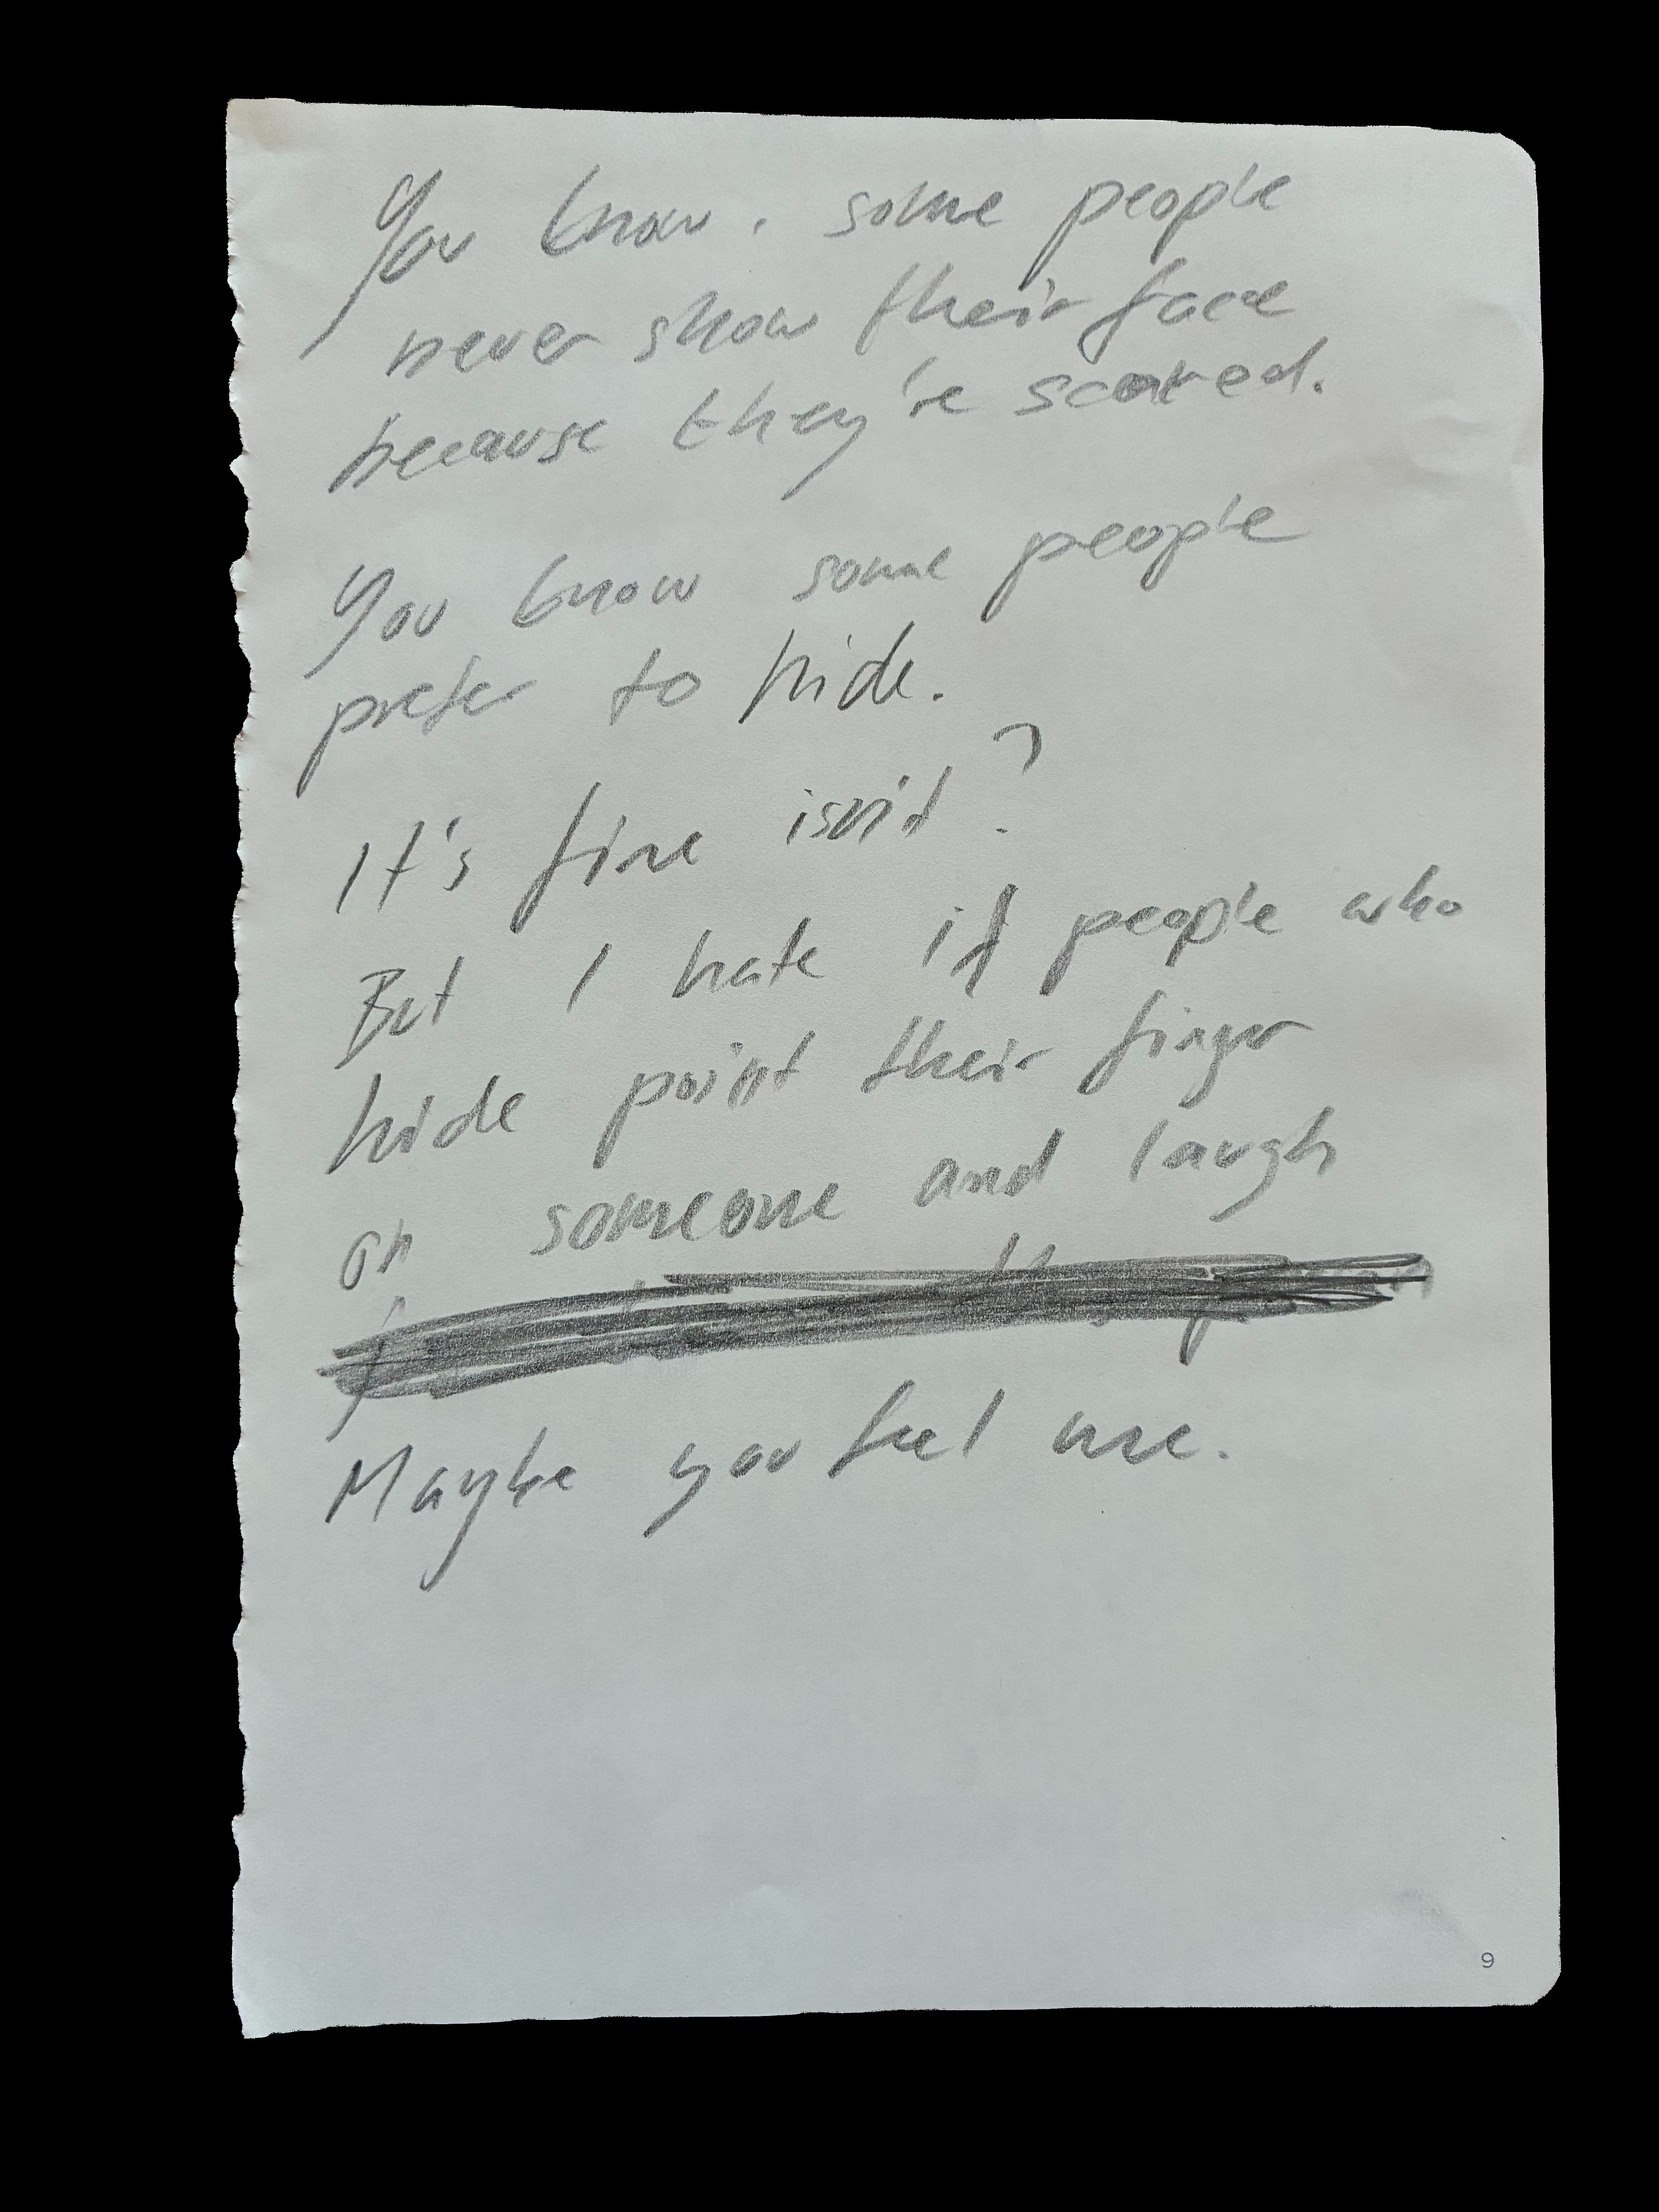 You know, some people
never show their face
because they're scared.
You know some people
prefer to hide.
It's fine isn't?
But I hate if people who
hide point their finger
on someone and laugh
Maybe you feel me.
9